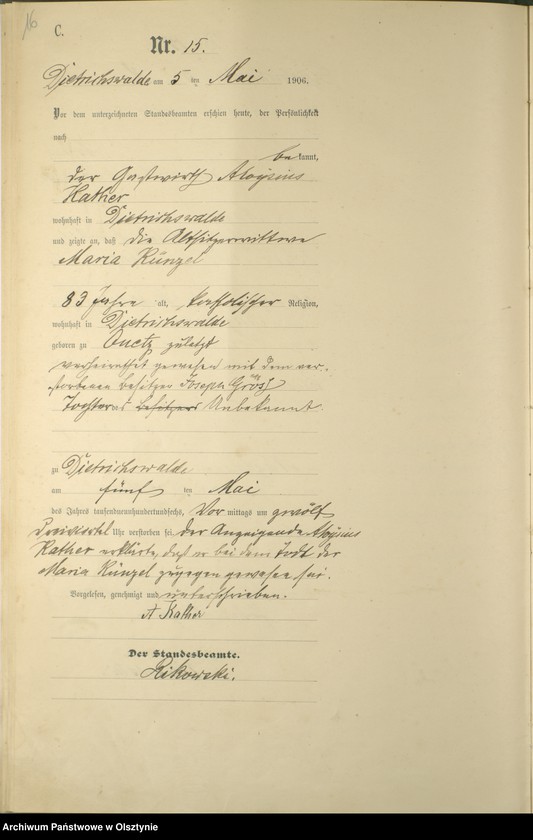 16
C.
Nr. 15.
Dietrichswalde am 5 ten Mai 1906.
Vor dem unterzeichneten Standesbeamten erschien heute, der Persönlichkeit
nach
be kannt,
der Gastwirth Aloysius
Kather
wohnhaft in Dietrichswalde
und zeigte an, daß die Altsitzerwittwe
Maria Künzel
83 Jahre alt, katholischer Religion,
wohnhaft in Dietrichswalde
geboren zu zuletzt
verheirathet gewesen mit dem ver-
storbenen Besitzer Joseph
Tochter des Besitzers Unbekannt.
zu Dietrichswalde
am fünf ten Mai
des Jahres tausendneunhundertundsechs, Vor mittags um zwölf
Dreiviertel Uhr verstorben sei. Der Anzeigende Aloysius
Kather erklärte, daß er bei dem Tode der
Maria Künzel zugegen gewesen sei.
Vorgelesen, genehmigt und unterschrieben.
A Kather
Der Standesbeamte.
Rikowski.
Archiwum Państwowe w Olsztynie